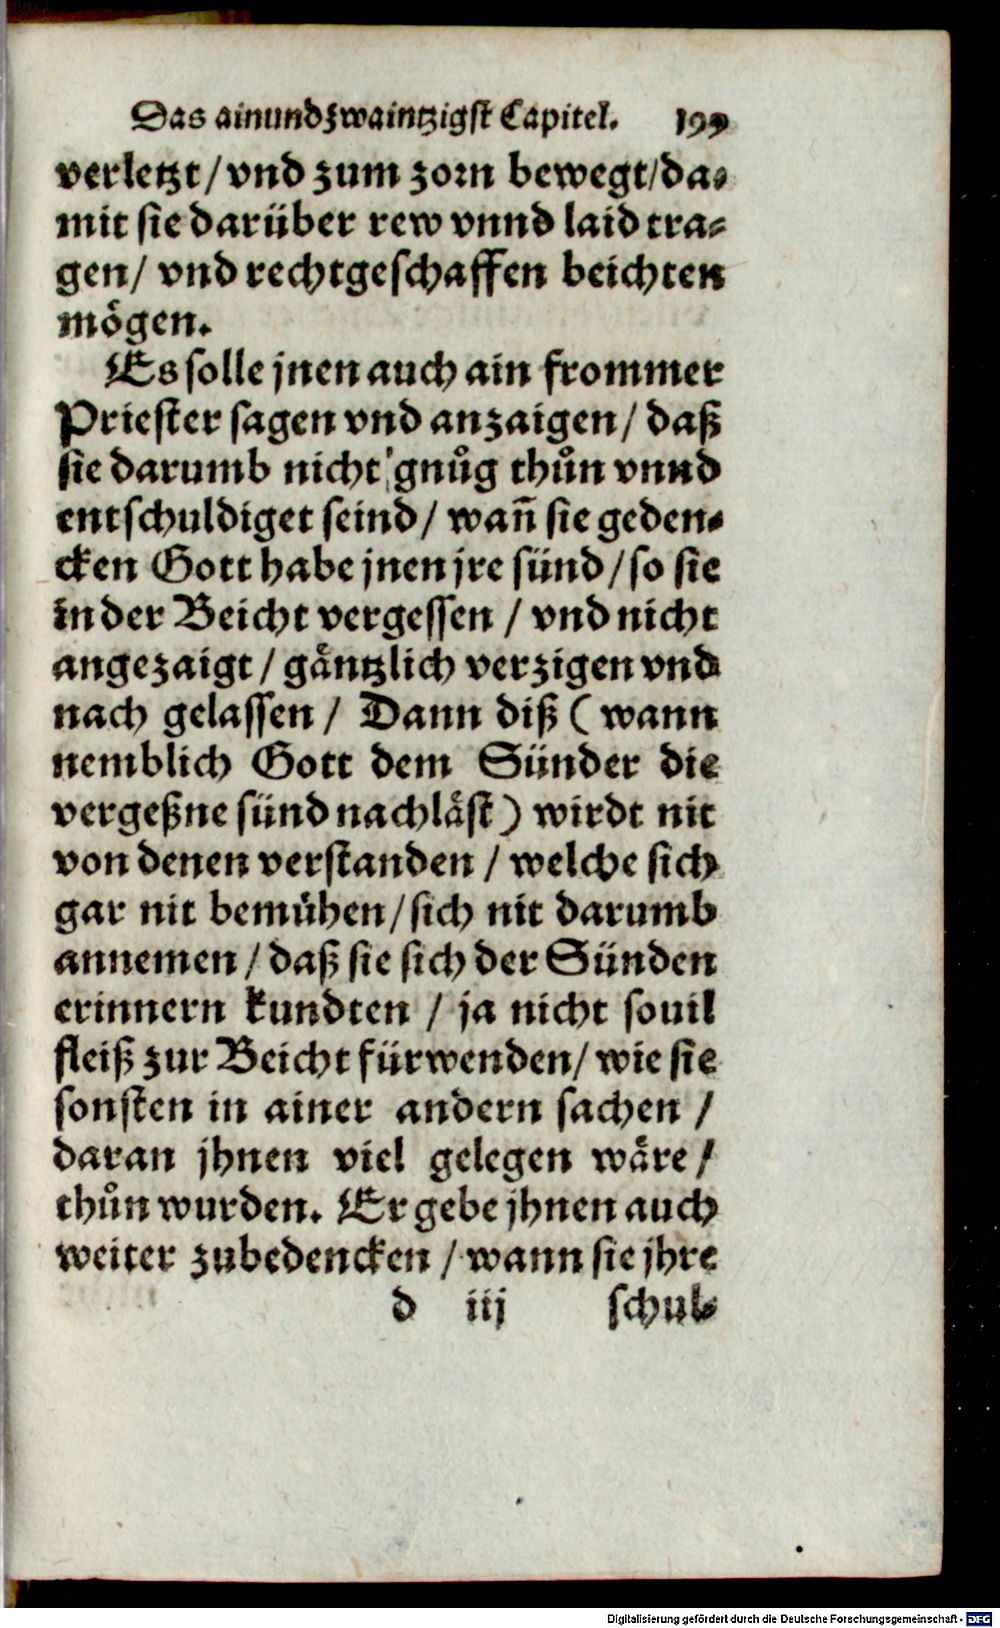 Das ainundzwaintzigst Capitel. 199
verletzt / vnd zum zorn bewegt / da-
mit sie darüber rew vnnd laid tra-
gen / vnd rechtgeschaffen beichten
mögen.
Es solle jnen auch ain frommer
Priester sagen vnd anzaigen / daß
sie darumb nicht gnůg thůn vnnd
entschuldiget seind / wañ sie geden-
cken Gott habe jnen jre sünd / so sie
in der Beicht vergessen / vnd nicht
angezaigt / gäntzlich verzigen vnd
nach gelassen / Dann diß ( wann
nemblich Gott dem Sünder die
vergeßne sünd nachläst ) wirdt nit
von denen verstanden / welche sich
gar nit bemühen / sich nit darumb
annemen / daß sie sich der Sünden
erinnern kundten / ja nicht souil
fleiß zur Beicht fürwenden / wie sie
sonsten in ainer andern sachen /
daran jhnen viel gelegen wäre /
thůn wurden. Er gebe jhnen auch
weiter zubedencken / wann sie jhre
d iij schul-
Digitalisierung gefördert durch die Deutsche Forschungsgemeinschaft - DFG